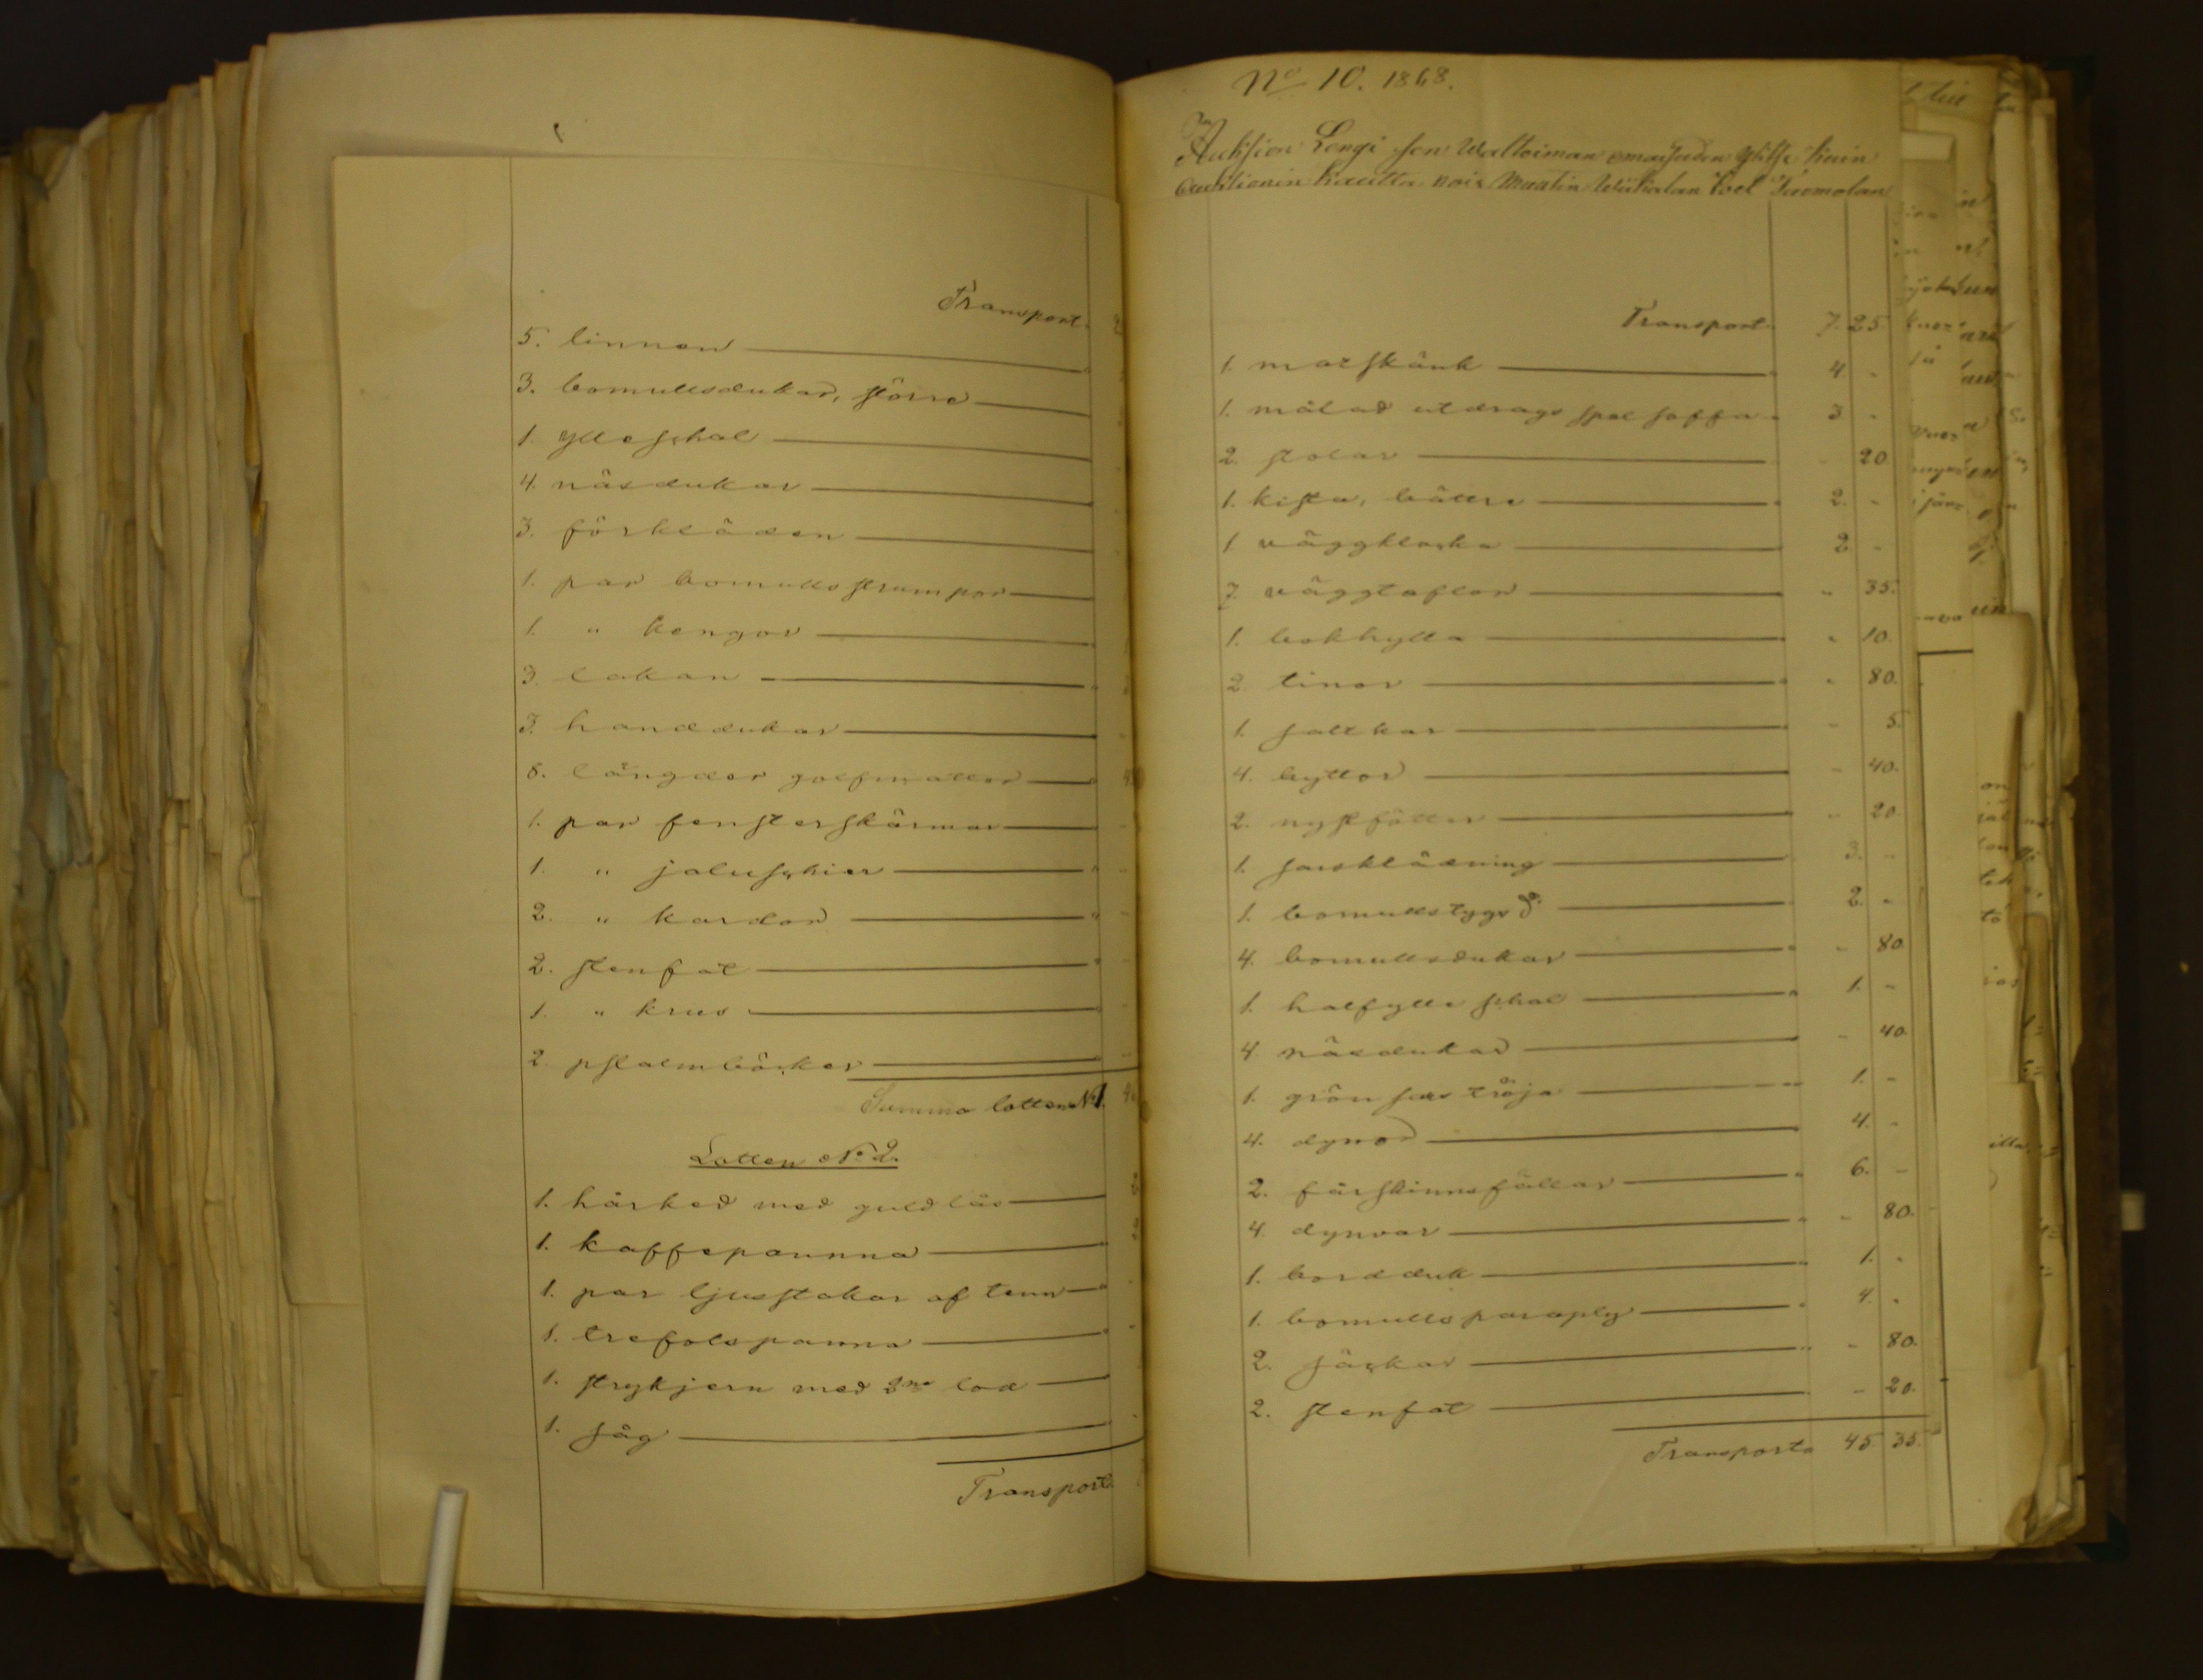 Transport
5. linnen
3. bomullsdukar, större
1. ylle schal
4. näsdukar
3. förkläden
1. par bomulls strumpor
1. " kängor
3. lakan
3. handdukar
8. längder golfmattor
1. par fensterskärmar
1. " jaluschier
2. " kardor
2. stenfat
1. " krus
2. pslalmböcker
Summa lotten No 1.
Lotten No 2.
1. hårked med guldlås
1. kaffepannna
1. par ljusstakar af tenn
1. trefotspanna
1. strykjern med 2ne lod
1. såg
Transport
No 10. 1868.
Auktsion Longi sen Waltoiman omaisuden ylitse kuin
Auktsionin kautta nois Maatin
Transport 7. 25.
1. matskänk 4. -
1. målad utdrags spel soffa 3 -
2. stolar - 20
1. kista, bättre 2. -
1. väggklocka 2 -
7. väggtaflor " 35.
1. bokhylla " 10.
2. tinor " 80.
1. saltkar - 5.
4. byttor - 40.
2. nystfötter - 20.
1. sarsklädning 3. -
1. bomullstygs do 2. -
4. bomullsdukar - 80
1. halfylle schal 1. -
4. näsdukar - 40
1. grön sars tröja 1. -
4. dynor 4. -
2. fårskinnsfällar 6. -
4. dynvar - 80.
1. bordduk 1. -
1. bomulls paraply 4. -
2. säckar - 80.
2. stenfat - 20.
Transport 45. 35.